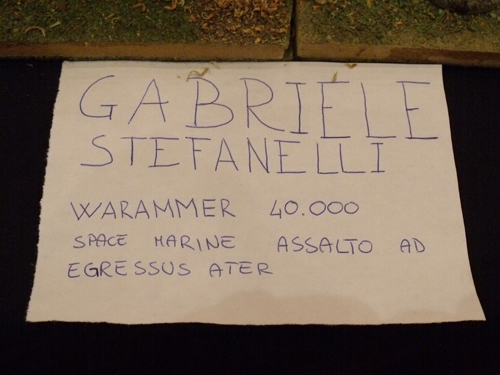 GABRIELE
STEFANELLI
WARAMMER 40.000
SPACE MARINE ASSALTO AD
EGRESSUS ATER